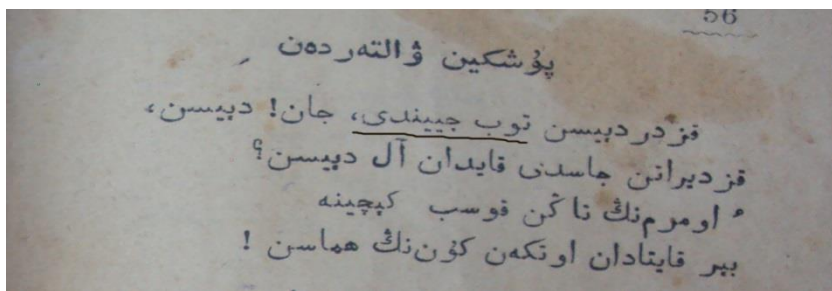 56
پۇشكين ۋالتەردەن
قزدردبيسن توب جييندى، جان! دبيسن،
قزديراتن جاسدنى قايدان آل دبيسن؟
ٴ اومرمنڭ تاڭن قوسب كېچينە
بير قايتادان اوتكەن كۇننڭ هماسن !